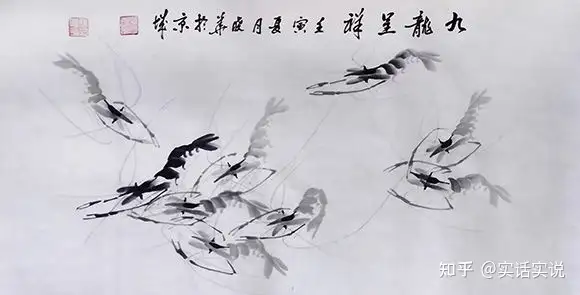 九龍呈祥 壬寅夏月 華於京城
知乎 @实话实说